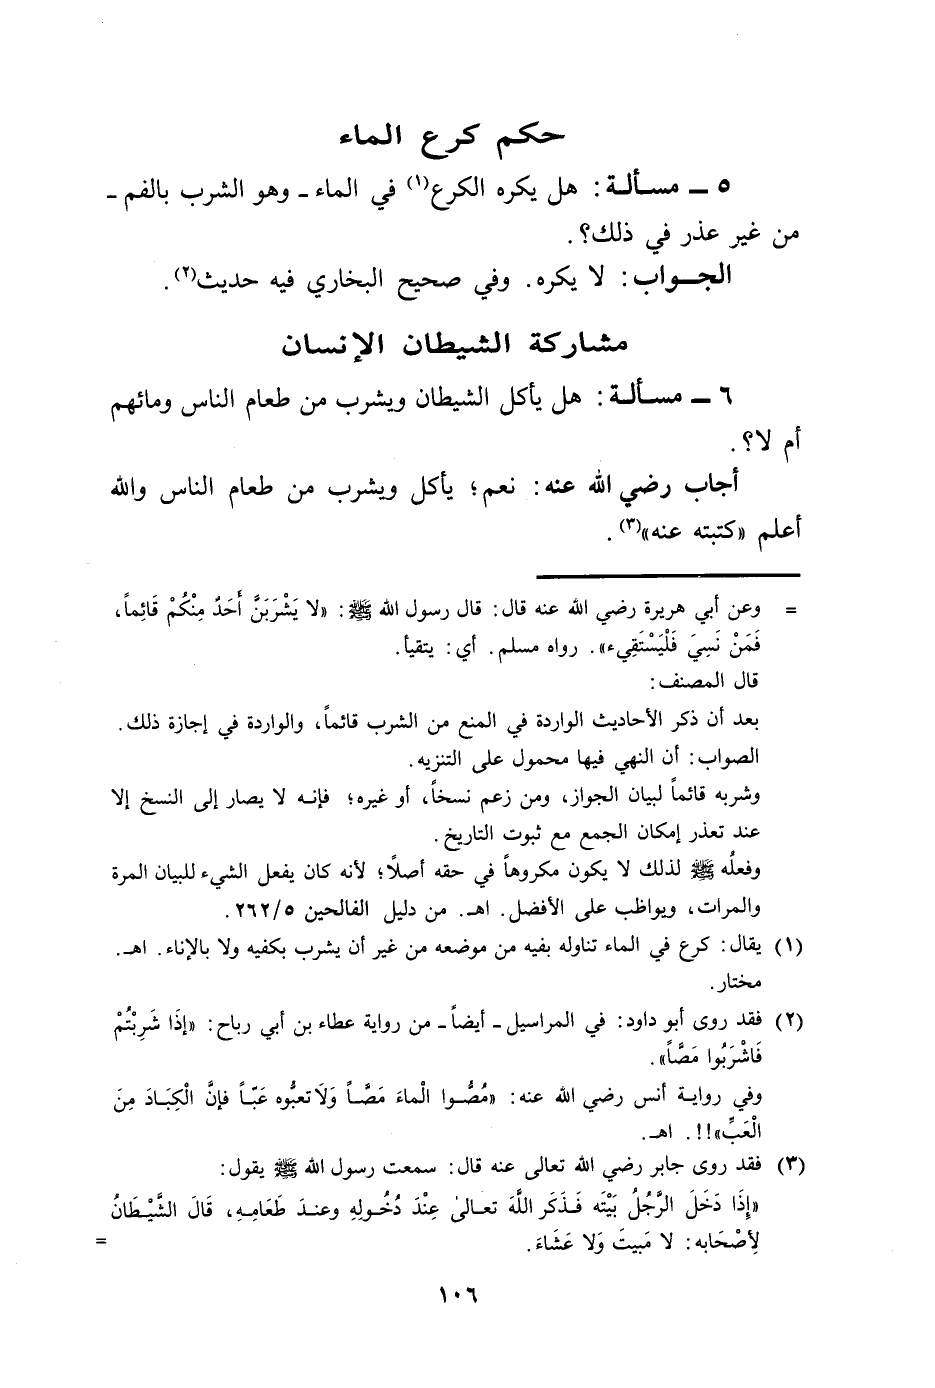 حكم كرع الماء
٥ ـ مسألة: هل يكره الكرع(١) في الماء ـ وهو الشرب بالفم ـ
من غير عذر في ذلك؟.
الجواب: لا يكره. وفي صحيح البخاري فيه حديث(٢).
مشاركة الشيطان الإنسان
٦ ـ مسألة: هل يأكل الشيطان ويشرب من طعام الناس ومائهم
أم لا؟.
أجاب رضي الله عنه: نعم؛ يأكل ويشرب من طعام الناس والله
أعلم «كتبته عنه»(٣).
= وعن أبي هريرة رضي الله عنه قال: قال رسول الله ﷺ: «لا يَشْرَبَنَّ أَحَدٌ مِنْكُمْ قَائِماً،
فَمَنْ نَسِيَ فَلْيَسْتَقِيء». رواه مسلم. أي: يتقيأ.
قال المصنف:
بعد أن ذكر الأحاديث الواردة في المنع من الشرب قائماً، والواردة في إجازة ذلك.
الصواب: أن النهي فيها محمول على التنزيه.
وشربه قائماً لبيان الجواز، ومن زعم نسخاً، أو غيره؛ فإنه لا يصار إلى النسخ إلا
عند تعذر إمكان الجمع مع ثبوت التاريخ.
وفعلُه ﷺ لذلك لا يكون مكروهاً في حقه أصلًا؛ لأنه كان يفعل الشيء للبيان المرة
والمرات، ويواظب على الأفضل. اهـ. من دليل الفالحين ٢٦٢/٥.
(١) يقال: كرع في الماء تناوله بفيه من موضعه من غير أن يشرب بكفيه ولا بالإناء. اهـ.
مختار.
(٢) فقد روى أبو داود: في المراسيل ـ أيضاً ـ من رواية عطاء بن أبي رباح: «إذَا شَرِبْتُمْ
فَاشْرَبُوا مَصَّاً».
وفي رواية أنس رضي الله عنه: «مُصُّوا الْماءَ مَصَّاً وَلَا تعبُّوه عَبّاً فإنَّ الْكِبَادَ مِنَ
الْعَبِّ»!!. اهـ.
(٣) فقد روى جابر رضي الله تعالى عنه قال: سمعت رسول الله ﷺ يقول:
«إِذَا دَخَلَ الرَّجُلُ بَيْتَه فَذَكَر اللَّهَ تعالىٰ عِنْدَ دُخُولِهِ وعند طَعَامِهِ، قَالَ الشَّيْطَانُ
لِأصْحَابه: لا مَبيتَ وَلا عَشَاءَ. =
١٠٦